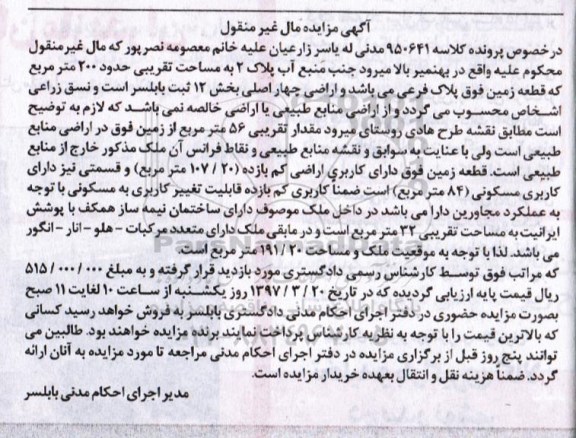 آگهی مزایده مال غیر منقول
در خصوص پرونده کلاسه ۹۵۰۶۴۱ مدنی له یاسر زارعیان علیه خانم معصومه نصرپور که مال غیرمنقول
محکوم علیه واقع در بهنمیر بالا میرود جنب منبع آب پلاک ۲ به مساحت تقریبی حدود ۲۰۰ متر مربع
که قطعه زمین فوق پلاک فرعی می باشد و اراضی چهار اصلی بخش ۱۲ ثبت بابلسر است و نسق زراعی
اشخاص محسوب می گردد و از اراضی منابع طبیعی یا اراضی خالصه نمی باشد که لازم به توضیح
است مطابق نقشه طرح هادی روستای میرود مقدار تقریبی ۵۶ متر مربع از زمین فوق در اراضی منابع
طبیعی است ولی با عنایت به سوابق و نقشه منابع طبیعی و نقاط فرانس آن ملک مذکور خارج از منابع
طبیعی است. قطعه زمین فوق دارای کاربری اراضی کم بازده (۲۰ / ۱۰۷ متر مربع) و قسمتی نیز دارای
کاربری مسکونی (۸۴ متر مربع) است ضمناً کاربری کم بازده قابلیت تغییر کاربری به مسکونی با توجه
به عملکرد مجاورین دارا می باشد در داخل ملک موصوف دارای ساختمان نیمه ساز همکف با پوشش
ایرانیت به مساحت تقریبی ۳۲ متر مربع است و در مابقی ملک دارای متعدد مرکبات - هلو - انار - انگور
می باشد. لذا با توجه به موقعیت ملک و مساحت ۲۰ / ۱۹۱ متر مربع است.
که مراتب فوق توسط کارشناس رسمی دادگستری مورد بازدید قرار گرفته و به مبلغ ۰۰۰ / ۰۰۰ / ۵۱۵
ریال قیمت پایه ارزیابی گردیده که در تاریخ ۲۰ / ۳ / ۱۳۹۷ روز یکشنبه از ساعت ۱۰ لغایت ۱۱ صبح
بصورت مزایده حضوری در دفتر اجرای احکام مدنی دادگستری بابلسر به فروش خواهد رسید کسانی
که بالاترین قیمت را با توجه به نظریه کارشناس پرداخت نمایند برنده مزایده خواهند بود. طالبین می
توانند پنج روز قبل از برگزاری مزایده در دفتر اجرای احکام مدنی مراجعه تا مورد مزایده به آنان ارائه
گردد. ضمناً هزینه نقل و انتقال بعهده خریدار مزایده است.
مدیر اجرای احکام مدنی بابلسر
ParsNamadData